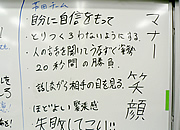 吉田チーム
自分に自信をもって
とりつくろわないようにする。
人の話を聞いてうなずく姿勢
20秒間の勝負
話しながら相手の目を見る。
ほどよい緊張感
失敗してこい!!
マナー
笑顔